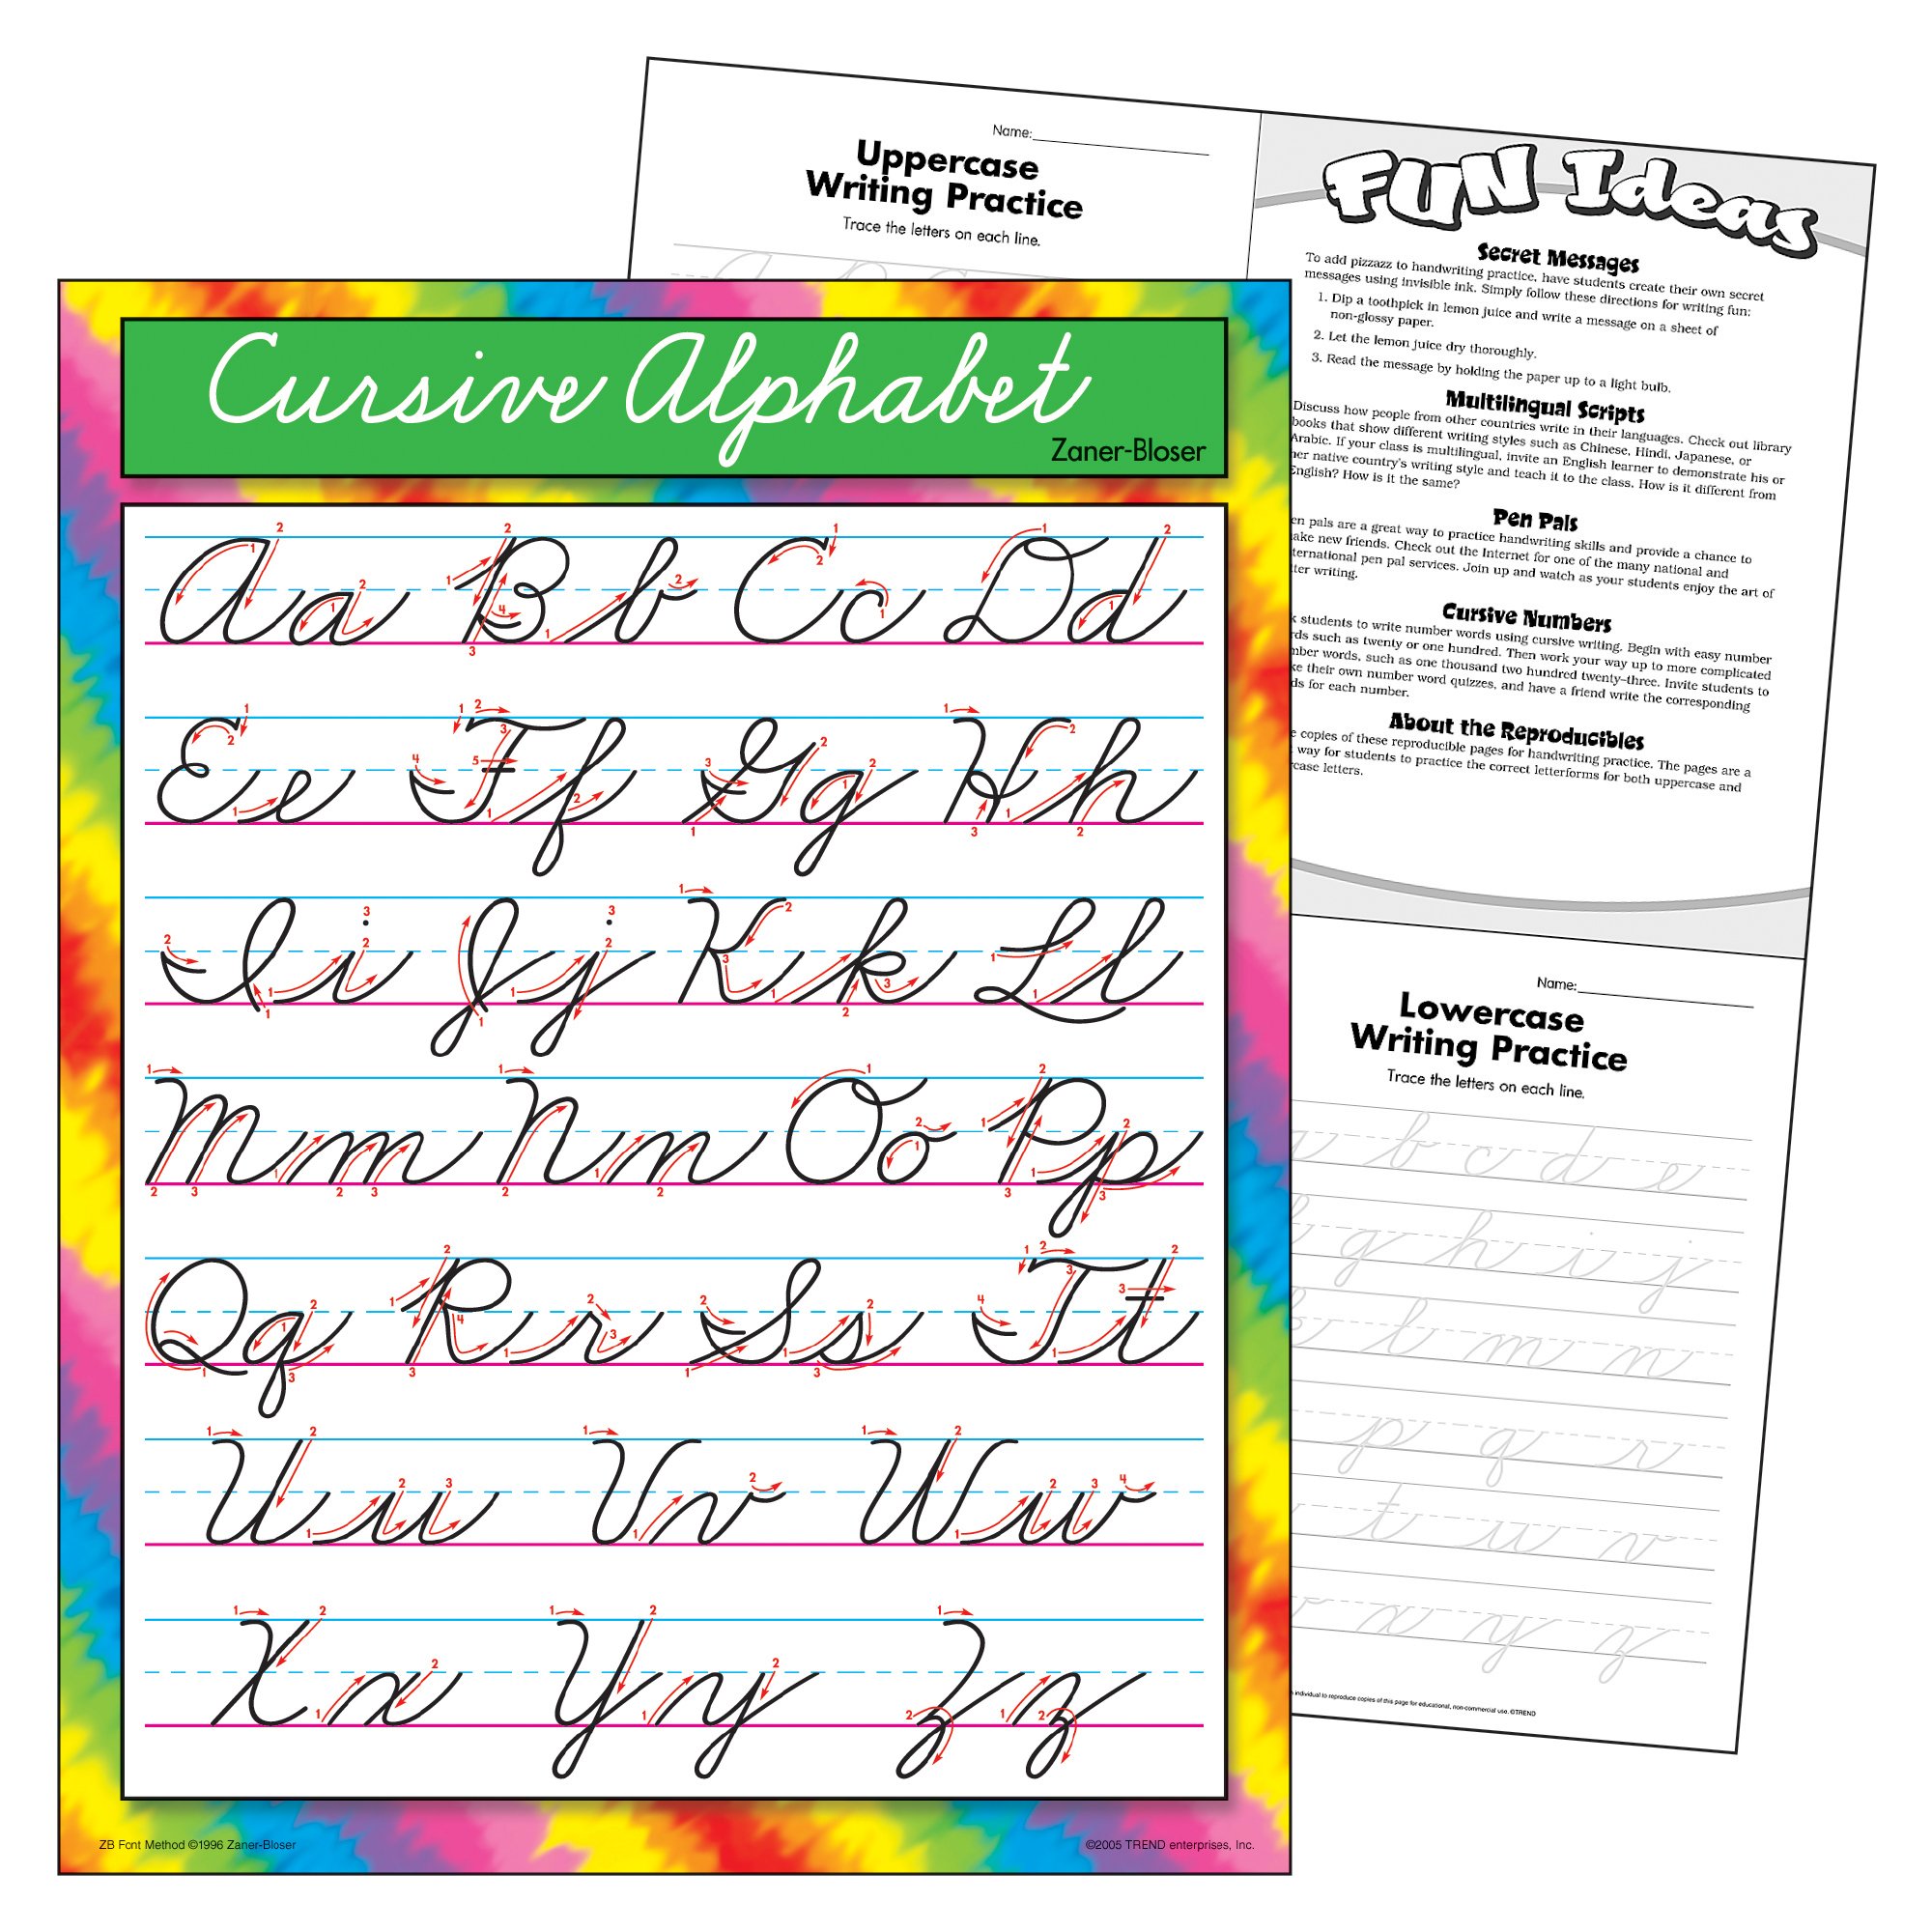 Name:
Uppercase
Writing Practice
Trace the letters on each line.
FUN Ideas
Secret Messages
To add pizzazz to handwriting practice, have students create their own secret
messages using invisible ink. Simply follow these directions for writing fun:
1. Dip a toothpick in lemon juice and write a message on a sheet of
non-glossy paper.
2. Let the lemon juice dry thoroughly.
3. Read the message by holding the paper up to a light bulb.
Multilingual Scripts
Discuss how people from other countries write in their languages. Check out library
books that show different writing styles such as Chinese, Hindi, Japanese, or
Arabic. If your class is multilingual, invite an English learner to demonstrate his or
her native country's writing style and teach it to the class. How is it different from
English? How is it the same?
Pen Pals
pals are a great way to practice handwriting skills and provide a chance to
make new friends. Check out the Internet for one of the many national and
international pen pal services. Join up and watch as your students enjoy the art of
writing.
Cursive Numbers
students to write number words using cursive writing. Begin with easy number
such as twenty or one hundred. Then work your way up to more complicated
words, such as one thousand two hundred twenty-three. Invite students to
their own number word quizzes, and have a friend write the corresponding
for each number.
About the Reproducibles
copies of these reproducible pages for handwriting practice. The pages are a
way for students to practice the correct letterforms for both uppercase and
letters.
Cursive Alphabet
Zaner-Bloser
Aa Bb Cc Dd
Ee Ff Gg Hh
Ii Jj Kk Ll
Mm Nn Oo Pp
Qq Rr Ss Tt
Uu Vv Ww
Xx Yy Zz
ZB Font Method ©1996 Zaner-Bloser
©2005 TREND enterprises, Inc.
Name:
Lowercase
Writing Practice
Trace the letters on each line.
b c d e
g h i j
l m n
p q r
t u v
x y z
individual to reproduce copies of this page for educational, non-commercial use. ©TREND